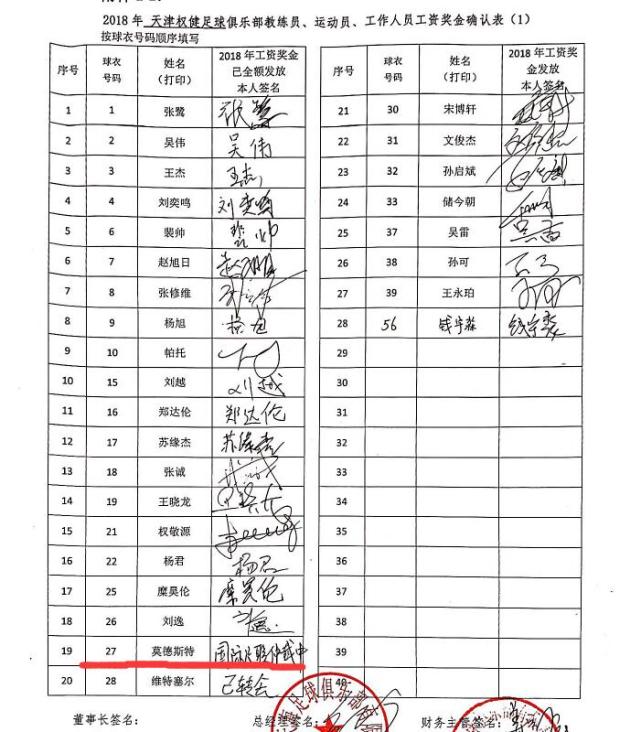 2018年 天津权健足球俱乐部教练员、运动员、工作人员工资奖金确认表（1）
按球衣号码顺序填写
序号 球衣号码 姓名（打印） 2018年工资奖金已全额发放本人签名
1 1 张鹭 张鹭
2 2 吴伟 吴伟
3 3 王杰 王杰
4 4 刘奕鸣 刘奕鸣
5 6 裴帅 裴帅
6 7 赵旭日 赵旭日
7 8 张修维
8 9 杨旭 杨旭
9 10 帕托
10 15 刘越 刘越
11 16 郑达伦 郑达伦
12 17 苏缘杰 苏缘杰
13 18 张诚
14 19 王晓龙
15 21 权敬源
16 22 杨君 杨君
17 25 糜昊伦 糜昊伦
18 26 刘逸
19 27 莫德斯特 国际足联仲裁中
20 28 维特塞尔 已转会
序号 球衣号码 姓名（打印） 2018年工资奖金发放本人签名
21 30 宋博轩
22 31 文俊杰
23 32 孙启斌
24 33 储今朝
25 37 吴雷 吴雷
26 38 孙可
27 39 王永珀
28 56 钱宇淼 钱宇淼
29
30
31
32
33
34
35
36
37
38
39
40
董事长签名： 总经理签名： 财务主管签名：
足球俱乐部